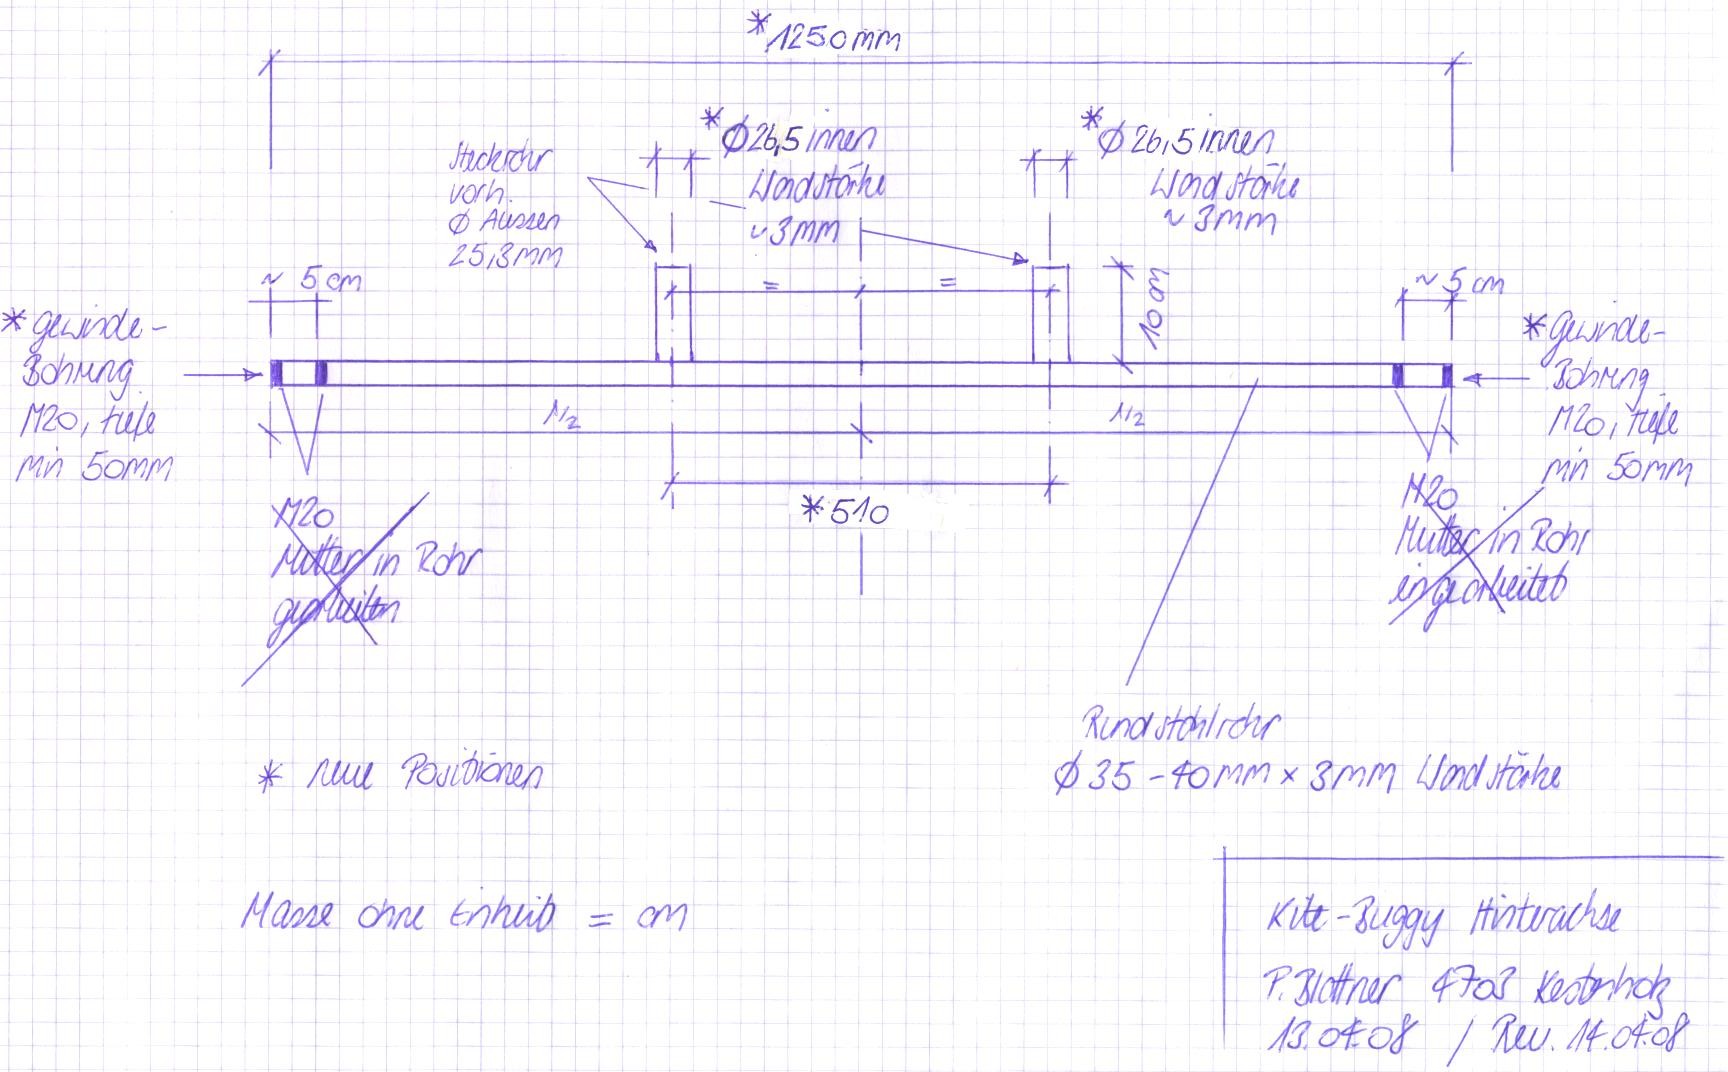 *1250mm
*Ø26,5 innen
Wandstärke
~3mm
*Ø26,5 innen
Wandstärke
~3mm
Steckrohr
vorh.
Ø Aussen
25,3mm
~ 5 cm
= =
10 cm
~ 5 cm
*Gewinde-
Bohrung
M20, tiefe
min 50mm
*Gewinde-
Bohrung
M20, tiefe
min 50mm
1/2
1/2
*510
M20
Mutter in Rohr
gearbeiten
M20
Mutter in Rohr
eingearbeitet
Rundstahlrohr
Ø35-40mm x 3mm Wandstärke
* neue Positionen
Masse ohne Einheit = cm
Kite-Buggy Hinterachse
P. Blattner 4703 Kestenholz
13.04.08 / Rev. 14.04.08